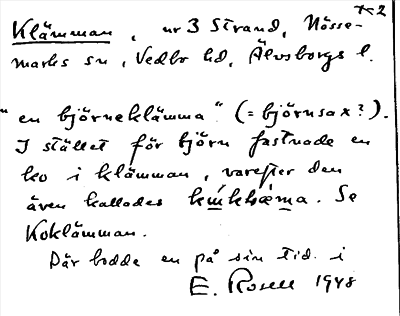 K2
Klämman, ur 3 Strand, Nösse-
marks sn, Vedbo hd, Älvsborgs l.
"en björneklämma" (= björnsax?).
I stället för björn fastnade en
ko i klämman, varefter den
även kallades
Se
Koklämman.
Där bodde en på sin tid. i
E. Rosell 1948